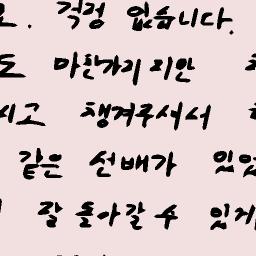 요. 걱정 없습니다.
도 마찬가지 지만
시고 챙겨주셔서
같은 선배가 있었
잘 돌아갈 수 있게